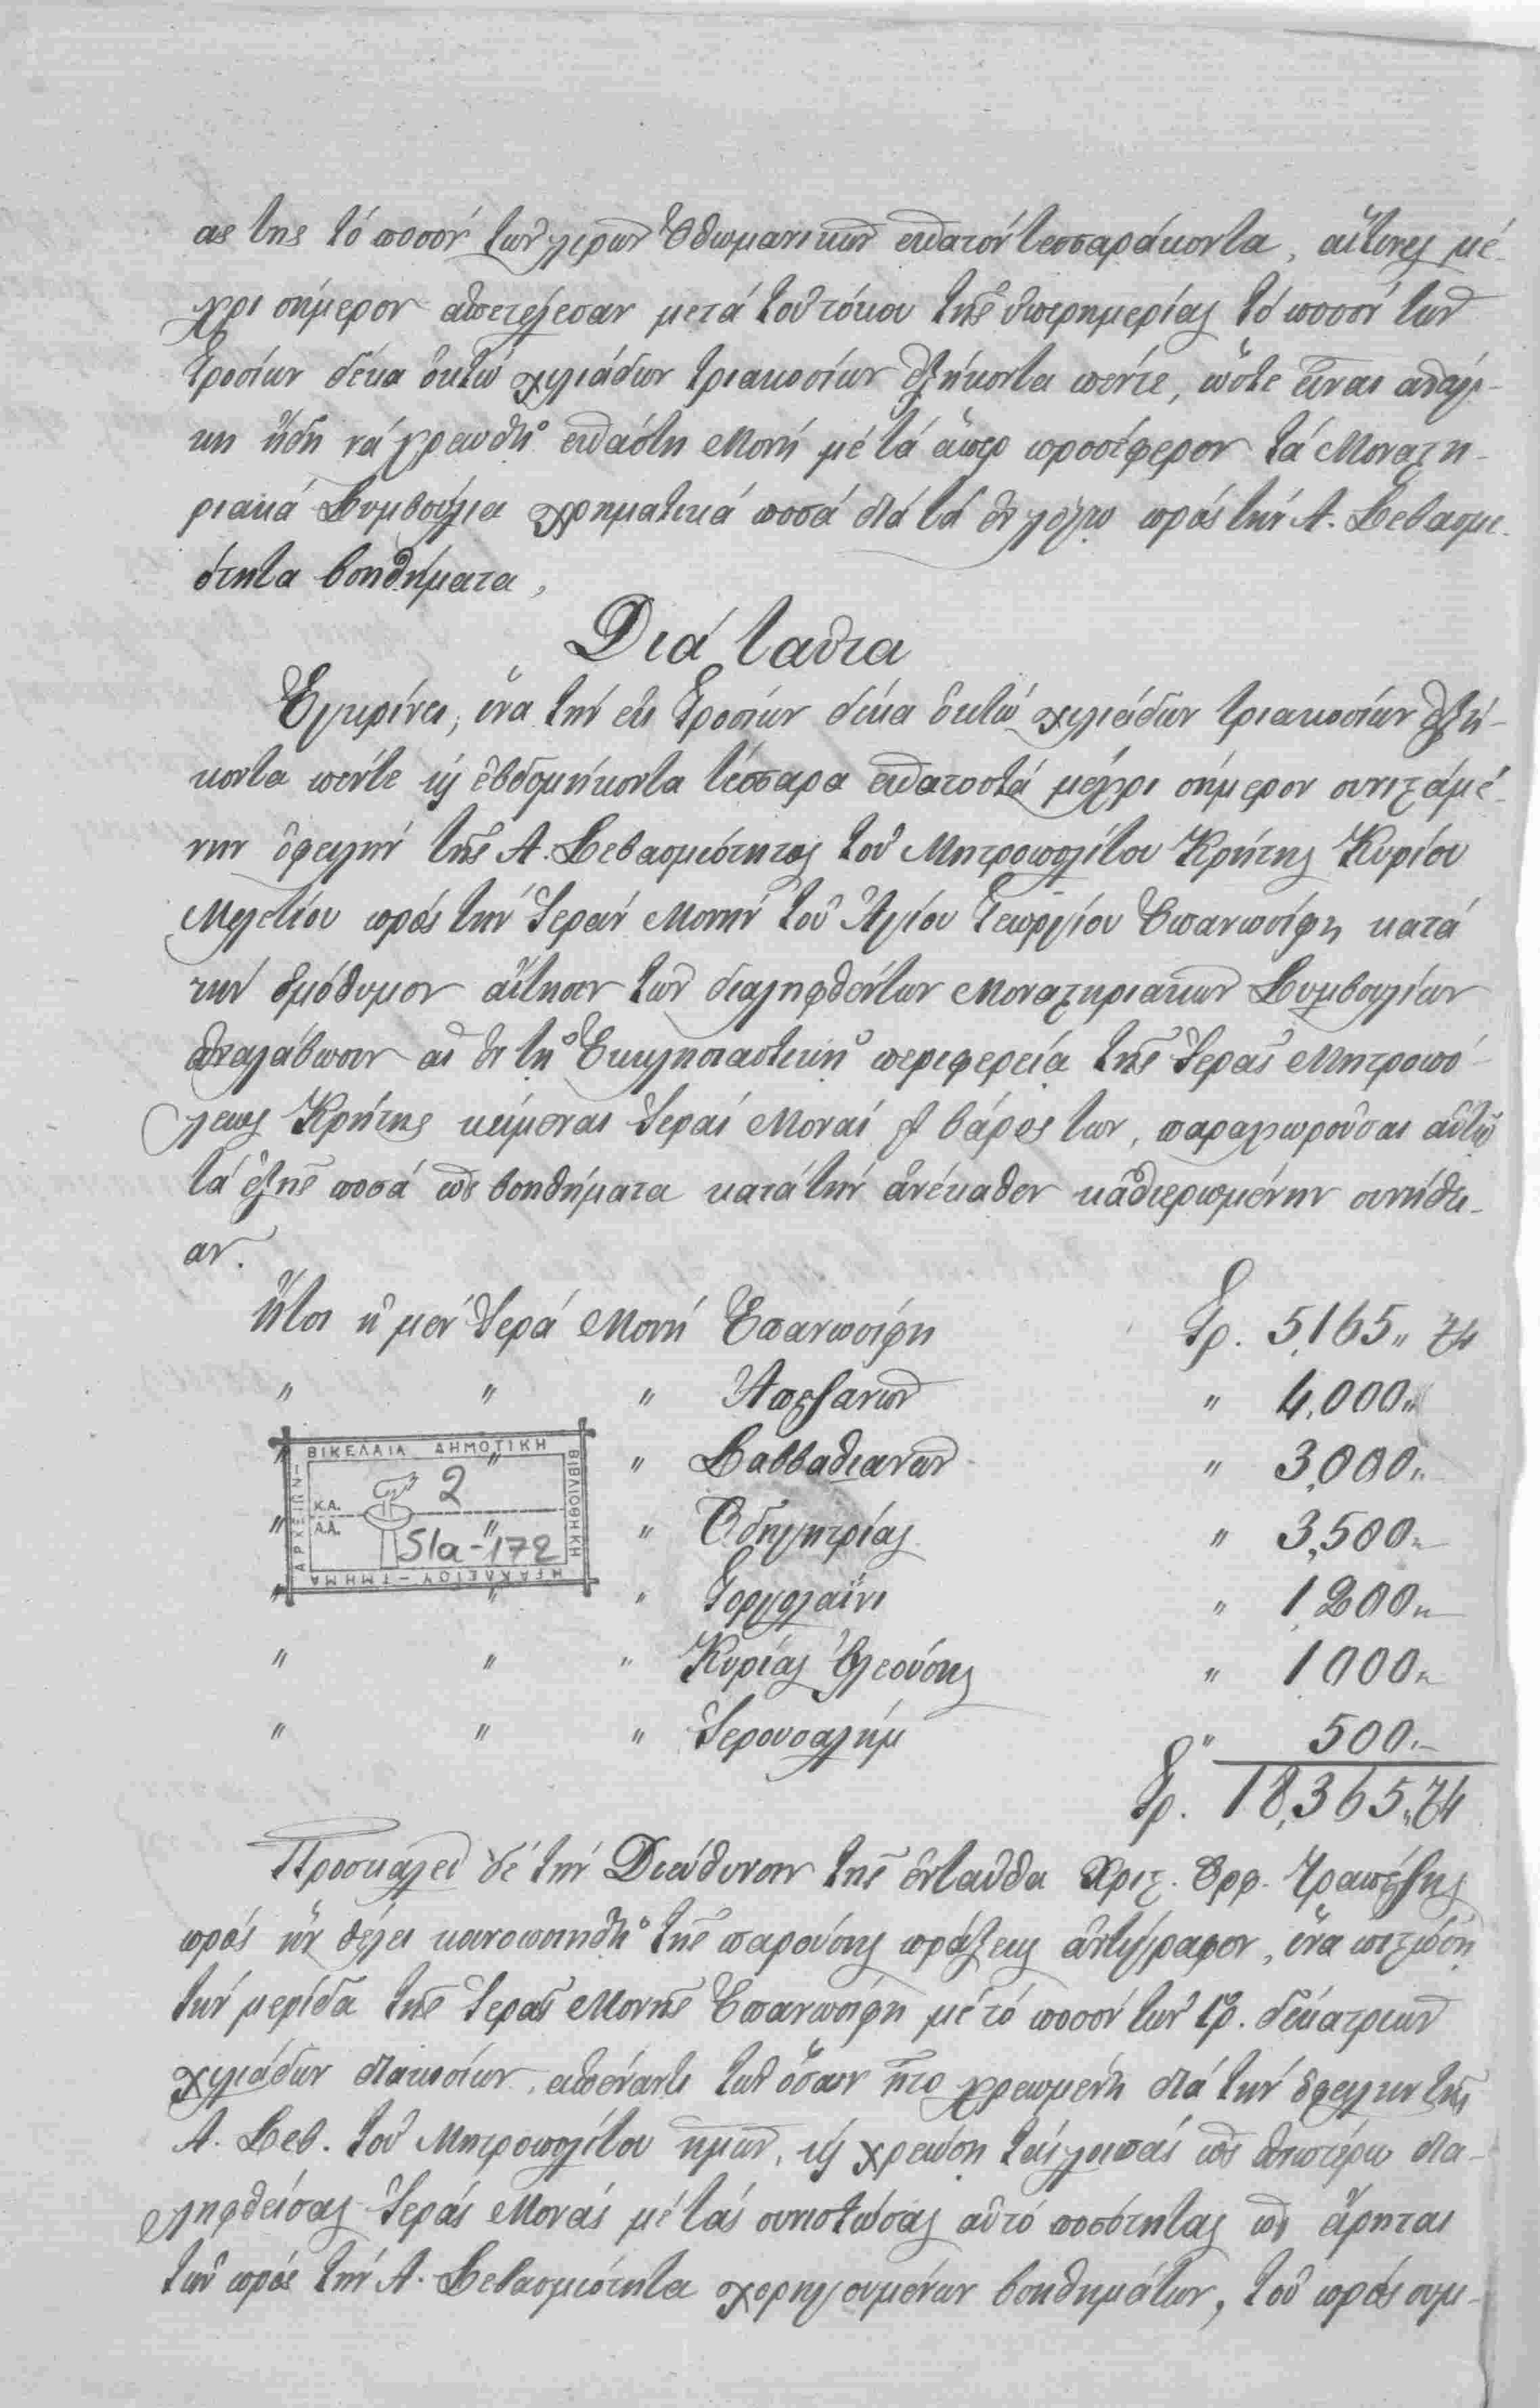 ας της τό ποσόν τῶν λιρῶν Ὀθωμανικῶν ἑκατόν τεσσαράκοντα, αἵτινες μέ-
χρι σήμερον ἀπετέλεσαν μετά τοῦ τόκου τῆς ὑπερημερίας τό ποσόν τῶν
Γροσίων δέκα ὀκτώ χιλιάδων τριακοσίων ἑξήκοντα πέντε, ὥστε εἶναι ἀνάγ-
κη ἤδη νά χρεωθῇ ἑκάστη Μονή μέ τά ἅπερ προσέφερον τά Μοναστη-
ριακά Συμβούλια χρηματικά ποσά διά τά ἐν λόγῳ πρός τήν Α. Σεβασμι-
ότητα βοηθήματα,
Διά ταῦτα
Ἐγκρίνει, ἵνα τήν ἐκ Γροσίων δέκα ὀκτώ χιλιάδων τριακοσίων ἑξή-
κοντα πέντε ϗ ἑβδομήκοντα τέσσαρα ἑκατοστά μέχρι σήμερον συνισταμέ-
νην ὀφειλήν τῆς Α. Σεβασμιότητος τοῦ Μητροπολίτου Κρήτης Κυρίου
Μελετίου πρός τήν Ἱεράν Μονήν τοῦ Ἁγίου Γεωργίου Ἐπανωσήφη κατά
τήν ὁμόθυμον αἴτησιν τῶν διαληφθέντων Μοναστηριακῶν Συμβουλίων
ἀναλάβωσιν αἱ ἐν τῇ Ἐκκλησιαστικῇ περιφερείᾳ τῆς Ἱερᾶς Μητροπό-
λεως Κρήτης κείμεναι Ἱεραί Μοναί εἰς βάρος των, παραχωροῦσαι αὐτῷ
τά ἑξῆς ποσά ὡς βοηθήματα κατά τήν ἀνέκαθεν καθιερωμένην συνήθει-
αν.
Ἤτοι ἡ μέν Ἱερά Μονή Ἐπανωσήφη Γρ. 5,165,, 74
" " " Ἀπεζανῶν " 4,000,,
" " " Σαββαθιανῶν " 3,000,,
" " " Ὁδηγητρίας " 3,500,,
" " " Γοργολαΐνι " 1,200,,
" " " Κυρίας Ἐλεούσης " 1000,,
" " " Ἱερουσαλήμ " 500,,
Γρ. 18,365,,74
ΒΙΚΕΛΑΙΑ ΔΗΜΟΤΙΚΗ
ΒΙΒΛΙΟΘΗΚΗ
ΗΡΑΚΛΕΙΟΥ - ΤΜΗΜΑ
ΑΡΧΕΙΩΝ
Κ.Α. 2
Α.Α. 51α-172
Προσκαλεῖ δέ τήν Διεύθυνσιν τῆς ἐνταῦθα Χριστ. Ὀρφ. Τραπέζης
πρός ἥν θέλει κοινοποιηθῇ τῆς παρούσης πράξεως ἀντίγραφον, ἵνα πιστώσῃ
τήν μερίδα τῆς Ἱερᾶς Μονῆς Ἐπανωσήφη μέ τό ποσόν τῶν Γρ. δεκατριῶν
χιλιάδων διακοσίων, ἀπέναντι τῶν ὅσων ἦτο χρεωμένη διά τήν ὀφειλήν τῆς
Α. Σεβ. τοῦ Μητροπολίτου ἡμῶν, ϗ χρεώσῃ τάς λοιπάς ὡς ἀνωτέρω δια-
ληφθείσας Ἱεράς Μονάς μέ τάς συνιστώσας αὐτό ποσότητας ὡς εἴρηται
τῶν πρός τήν Α. Σεβασμιότητα χορηγουμένων βοηθημάτων, τοῦ πρός συμ-